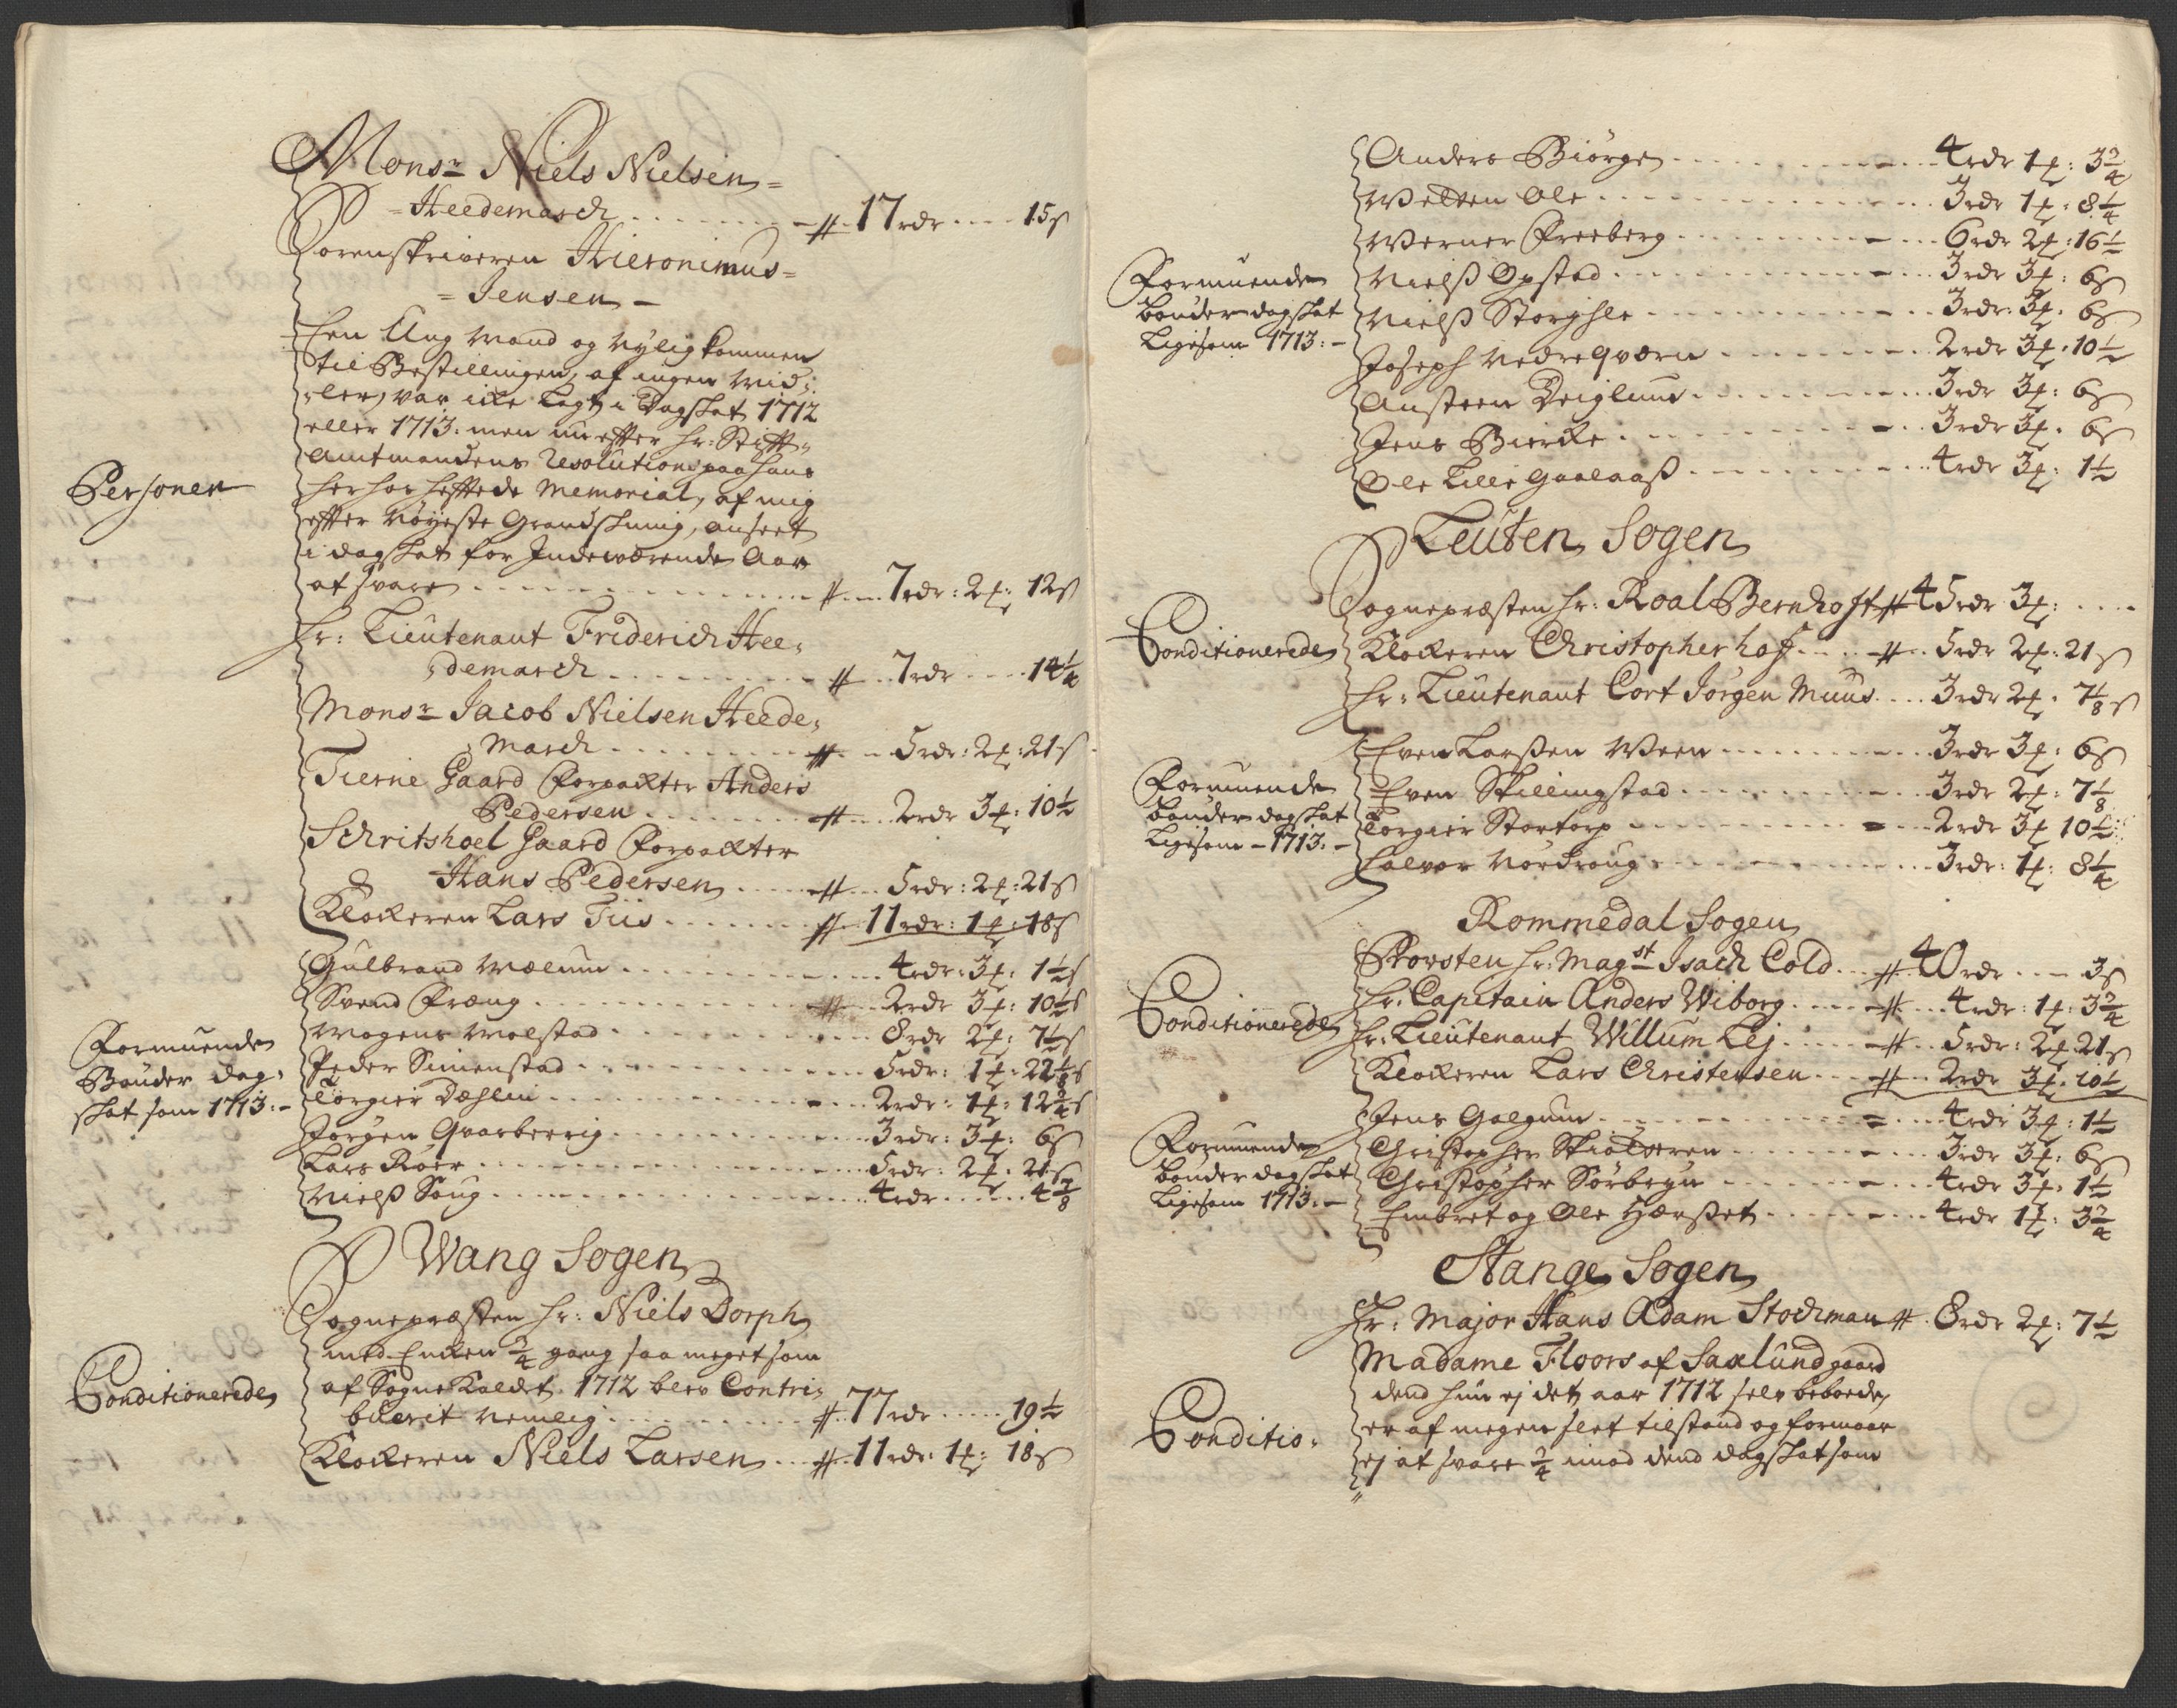 Monsr Niels Nielsen =
= Heedemarch ........ # 17 rdr ... 15 s
Sorenskriveren Hieronimus =
= Jensen -
Personer
Een Ung Mand og nylig kommen
til Bestillingen, af ingen Mid:
:ler, var icke lagt i Dagskat 1712
eller 1713. men nu effter Hr: Stifft=
Amtmandens Resolution paa hans
herhos heftede Memorial, af mig
effter nøyeste Grandskning, anseet
i dagskat for Indeværende Aar
at svare ........ # 7 rdr: 2 ℔: 12 s
Hr: Lieutenant Friderich Hee:
:demarch ........ # 7 rdr ... 14 1/4
Monsr Jacob Nielsen Heede:
:march ........ # 5 rdr: 2 ℔: 21 s
Tierne Gaard Forpackter Anders
Pedersen ........ # 2 rdr 3 ℔: 10 1/2
Schritshoel Gaard Forpackter
Hans Pedersen ..... # 5 rdr: 2 ℔: 21 s
Klockeren Lars Tiis ...... # 11 rdr: 1 ℔: 18 s
Formuende
Bønder dag:
skat som 1713: -
Gulbrand Mælum ........ 4 rdr: 3 ℔: 1 1/2 s
Svend Fræng ........ # 2 rdr 3 ℔: 10 1/2 s
Mogens Molstad ........ 8 rdr 2 ℔: 7 1/2 s
Peder Simenstad ........ 5 rdr: 1 ℔: 22 1/8 s
Torgier Dæhlin ........ 2 rdr: 1 ℔: 12 3/4 s
Jørgen Qvarberrig ........ 3 rdr: 3 ℔: 6 s
Lars Røer ........ 5 rdr: 2 ℔: 21 s
Nielß Saug ........ 4 rdr ..... 4 7/8
Wang Sogen
Conditionerede
Sognepræsten Hr: Niels Dorph
med Encken 3/4 gang saa meget som
af Sogne Kaldet 1712 blev Contri:
buerit nemlig ........ # 77 rdr .... 19 1/2
Klockeren Niels Larsen ... # 11 rdr: 1 ℔: 18 s
Formuende
bønder dagskat
Ligesom 1713: -
Anders Biørge ........ 4 rdr 1 ℔: 3 3/4
Wetten Ole ........ 3 rdr 1 ℔: 8 1/4
Werner Freeberg ........ 6 rdr 2 ℔: 16 1/2
Nielß Opstad ........ 3 rdr 3 ℔: 6 s
Nielß Storghle ........ 3 rdr: 3 ℔: 6 s
Joseph Nedre Qværn ........ 2 rdr 3 ℔: 10 1/2
Ansteen Deiglum ........ 3 rdr 3 ℔: 6 s
Jens Biercke ........ 3 rdr 3 ℔: 6 s
Ole Lille Gaalaaß ........ 4 rdr 3 ℔: 1 1/2
Leuten Sogen
Conditionerede
Sognepræsten Hr: Roal Bernhoft # 45 rdr 3 ℔: ....
Klockeren Christopher Hof .... # .. 5 rdr 2 ℔: 21 s
Hr: Lieutenant Cort Jørgen Muus ... 3 rdr 2 ℔: 7 1/8 s
Formuende
bønder dagskat
Ligesom - 1713: -
Even Larßen Ween ........ 3 rdr 3 ℔: 6 s
Even Skillingstad ........ 3 rdr 2 ℔: 7 1/8
Torgier Stortorp ........ 2 rdr 3 ℔ 10 1/2
Halvor Nordroug ........ 3 rdr: 1 ℔: 8 1/4
Rommedal Sogen
Conditionerede
Provsten Hr: Magst Isach Cold ... # 40 rdr ... 3 s
Hr: Capitain Anders Wiborg ..... # 4 rdr: 1 ℔: 3 3/4
Hr: Lieutenant Willum Lej ..... # 5 rdr: 2 ℔ 21 s
Klockeren Lars Christensen ... # 2 rdr 3 ℔. 10 1/2
Formuende
bønder dagskat
Ligesom 1713: -
Jens Galgum ........ 4 rdr 3 ℔: 1 1/2
Christopher Skiolderen ........ 3 rdr 3 ℔: 6 s
Christopher Sørbryn ........ 4 rdr 3 ℔: 1 1/2
Embret og Ole Hærßet ........ 4 rdr 1 ℔: 3 3/4
Stange Sogen
Conditio:
Hr: Major Hans Adam Stockman # 8 rdr 2 ℔: 7 1/2
Madame Floors af Saxlund gaard
dend hun ej det aar 1712 selv beboede
er af megen slet tilstand og formaar
ej at svare 3/4 imod dend dagskat som